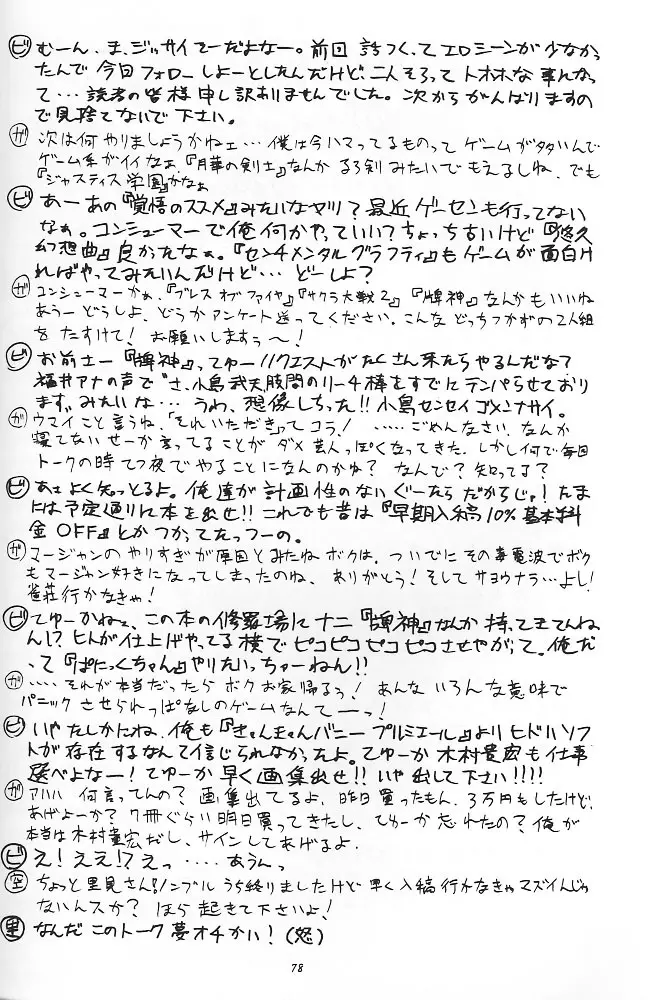 ビ むーん、ま、ジッサイそーだよなー。前回 詰つくってエロシーンが少なかっ
たんで今日フォローしよーとしたんだけど、二人そろってトホホな事んなっ
て…読者の皆様申し訳ありませんでした。次からがんばりますの
で見捨てないで下さい。
ガ 次は何やりましょうかねェ…僕は今ハマってるものってゲームが多いんで
ゲーム系がイイなぁ、『月華の剣士』なんかるろ剣みたいでもえるしね、でも
『ジャスティス学園』かなぁ
ビ あーあの『覚悟のススメ』みたいなヤツ?最近ゲーセンも行ってない
なぁ。コンシューマーで俺何かやっていい?ちょっち古いけど『悠久
幻想曲』良かったなぁ。『センチメンタルグラフティ』もゲームが面白け
ればやってみたいんだけど…どーしよ?
ガ コンシューマーかぁ、『ブレスオブファイヤ』『サクラ大戦2』『牌神』なんかもいいね
あうーどうしよ、どうかアンケート送ってください。こんなどっちつかずの2人組
をたすけて!お願いしますぅ〜!
ビ お前さー『牌神』ってゆーリクエストがたくさん来たらやるんだな?
福井アナの声でさ、小島武夫股間のリーチ棒をすでにテンパらせており
ます。みたいな…うわ、想像しちった!!小島センセイゴメンナサイ。
ガ ウマイこと言うね、「それいただき」ってコラ!……ごめんなさい、なんか
寝てないせーか言ってることがダメ芸人っぽくなってきた、しかし何で毎回
トークの時てつ夜でやることになんのかね?なんで?知ってる?
ビ あぁよく知っとるよ。俺達が計画性のないぐーたらだからじゃ!たま
には予定通りに本を出せ!!これでも昔は『早期入稿10%基本料
金OFF』とかつかってたっつーの。
ガ マージャンのやりすぎが原因とみたねボクは、ついでにその毒電波でボク
もマージャン好きになってしまったのね、ありがとう!そしてサヨウナラ…よし!
雀荘行かなきゃ!
ビ てゆーかねぇ、この本の修羅場にナニ『牌神』なんか持ってきてんね
ん!?ヒトが仕上げやってる横でピコピコピコピコさせやがって。俺だ
って『ぱにっくちゃん』やりたいっちゃーねん!!
ガ ……それが本当だったらボクお家帰るっ!あんないろんな意味で
パニックさせられっぱなしのゲームなんてーっ!
ビ いやたしかにね、俺も『きゃんきゃんバニープルミエール』よりヒドいソフ
トが存在するなんて信じられなかったよ。てゆーか木村貴宏も仕事
選べよなー!てゆーか早く画集出せ!!いや出して下さい!!!!
ガ アハハ 何言ってんの?画集出てるよ、昨日買ったもん、3万円もしたけど、
あげよーか?7冊ぐらい明日買ってきたし、てゆーか忘れたの?俺が
本当は木村貴宏だし、サインしてあげるよ。
ビ え!ええ!?えっ……あうんっ
空 ちょっと里見さん!ノンブルうち終りましたけど早く入稿行かなきゃマズイんじゃ
ないんスか?ほら起きて下さいよ!
里 なんだ このトーク夢オチかい!(怒)
78